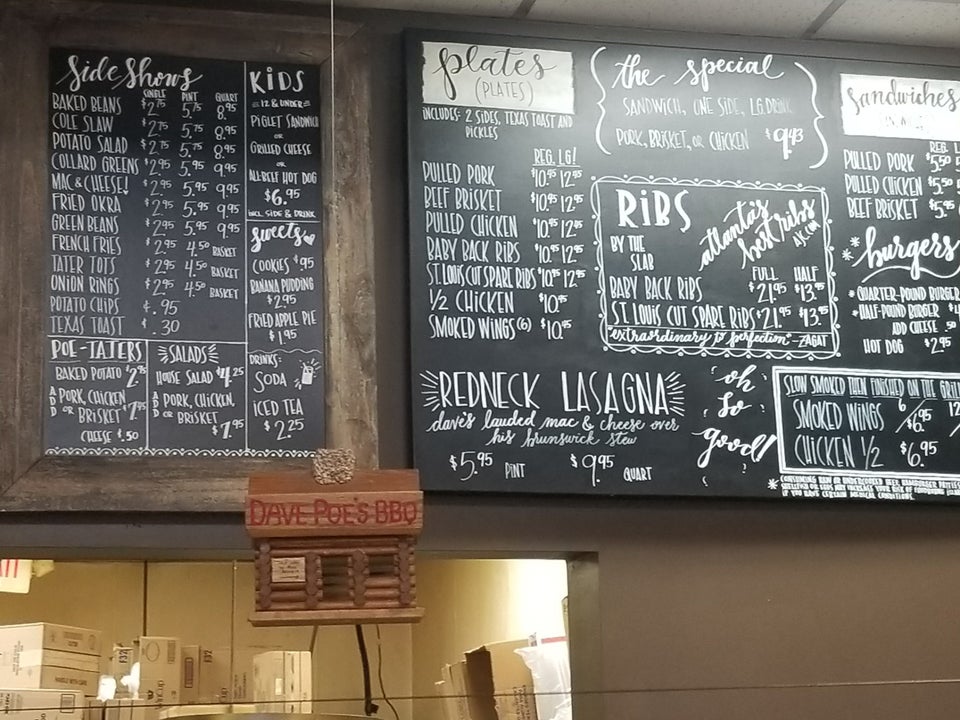 Side Shows
SINGLE PINT QUART
BAKED BEANS $2.75 5.75 8.95
COLE SLAW $2.75 5.75 8.95
POTATO SALAD $2.75 5.75 8.95
COLLARD GREENS $2.95 5.95 9.95
MAC & CHEESE! $2.95 5.95 9.95
FRIED OKRA $2.95 5.95 9.95
GREEN BEANS $2.95 5.95 9.95
FRENCH FRIES $2.95 4.50 BASKET
TATER TOTS $2.95 4.50 BASKET
ONION RINGS $2.95 4.50 BASKET
POTATO CHIPS $.95
TEXAS TOAST $.30
POE-TATERS
BAKED POTATO $2.95
ADD PORK, CHICKEN
OR BRISKET $7.95
CHEESE $.50
SALADS
HOUSE SALAD $4.25
ADD PORK, CHICKEN,
OR BRISKET
$7.95
KIDS
12 & UNDER
PIGLET SANDWICH
OR
GRILLED CHEESE
OR
ALL-BEEF HOT DOG
$6.95
INCL. SIDE & DRINK
Sweets
COOKIES $.95
BANANA PUDDING
$2.95
FRIED APPLE PIE
$1.95
DRINKS:
SODA
ICED TEA
$2.25
plates
(PLATES)
INCLUDES: 2 SIDES, TEXAS TOAST AND
PICKLES
REG. LG!
PULLED PORK $10.95 12.95
BEEF BRISKET $10.95 12.95
PULLED CHICKEN $10.95 12.95
BABY BACK RIBS $10.95 12.95
ST. LOUIS CUT SPARE RIBS $10.95 12.95
1/2 CHICKEN $10.95
SMOKED WINGS (6) $10.95
the special
SANDWICH, ONE SIDE, LG. DRINK
PORK, BRISKET, OR CHICKEN $9.43
RIBS
BY THE
SLAB
atlanta's
best ribs
AJC.COM
FULL HALF
BABY BACK RIBS $21.95 $13.95
ST. LOUIS CUT SPARE RIBS $21.95 $13.95
"extraordinary to perfection" -ZAGAT
REDNECK LASAGNA
dave's lauded mac & cheese over
his brunswick stew
$5.95 PINT $9.95 QUART
oh
so
good!
Sandwiches
REG. L
PULLED PORK $5.50
PULLED CHICKEN $5.50
BEEF BRISKET $5.95
*burgers
*QUARTER-POUND BURGER
*HALF-POUND BURGER
ADD CHEESE .50
HOT DOG $2.95
SLOW SMOKED THEN FINISHED ON THE GRILL
SMOKED WINGS 6/$6.95 12
CHICKEN 1/2 $6.95
DAVE POE'S BBQ